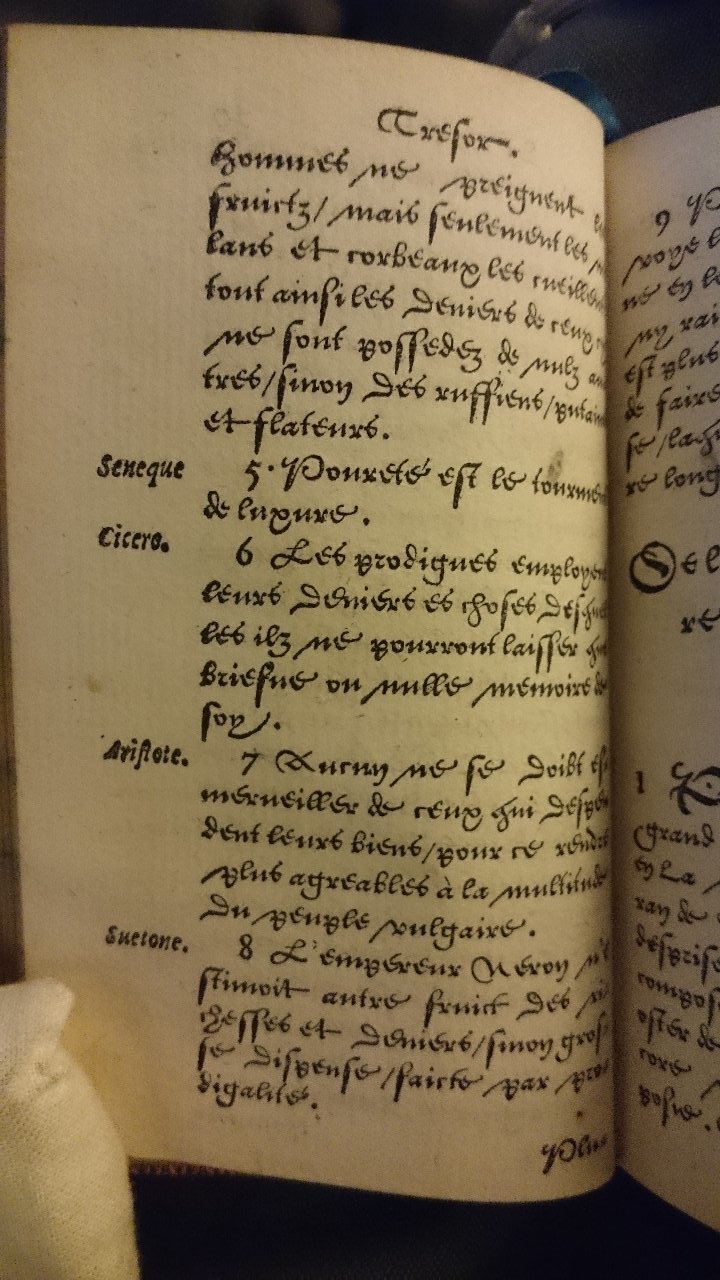 Tresor.
hommes ne preignent
fruictz/ mais seulement les
lans et corbeaux les cueillent
tout ainsi les deniers de ceux
ne sont possedez de nulz au
tres/sinon des ruffiens/putains
et flateurs.
Seneque 5. Poureté est le tourment
de luxure.
Cicero. 6 Les prodigues employent
leurs deniers es choses desque
les ilz ne pourront laisser que
briefue ou nulle memoire de
soy.
Aristote. 7 Aucun ne se doibt es
merueiller de ceux qui despen
dent leurs biens/pour ce rendre
plus agreables à la multitude
du peuple vulgaire.
Suetone. 8 L'empereur Neron n'e
stimoit autre fruict des ri
chesses et deniers/sinon gros
se dispense/faicte par pro
digalité.
Plus
9
roye
ne en le
ny rai
est plus
de faire
se/lach
re long
Se l
re
1
grand
en La
ran de
desprise
compos
oster de
core
posie.